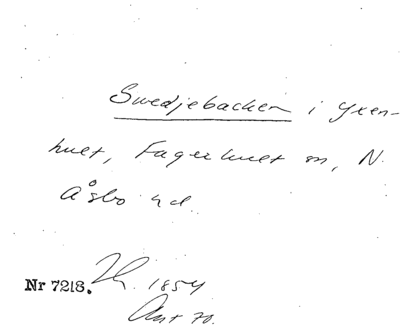 Swedjebacken i Yxen-
hult, Fagerhult sn, N.
Åsbo hd.
Nr 7218. 1854
Ant 70.